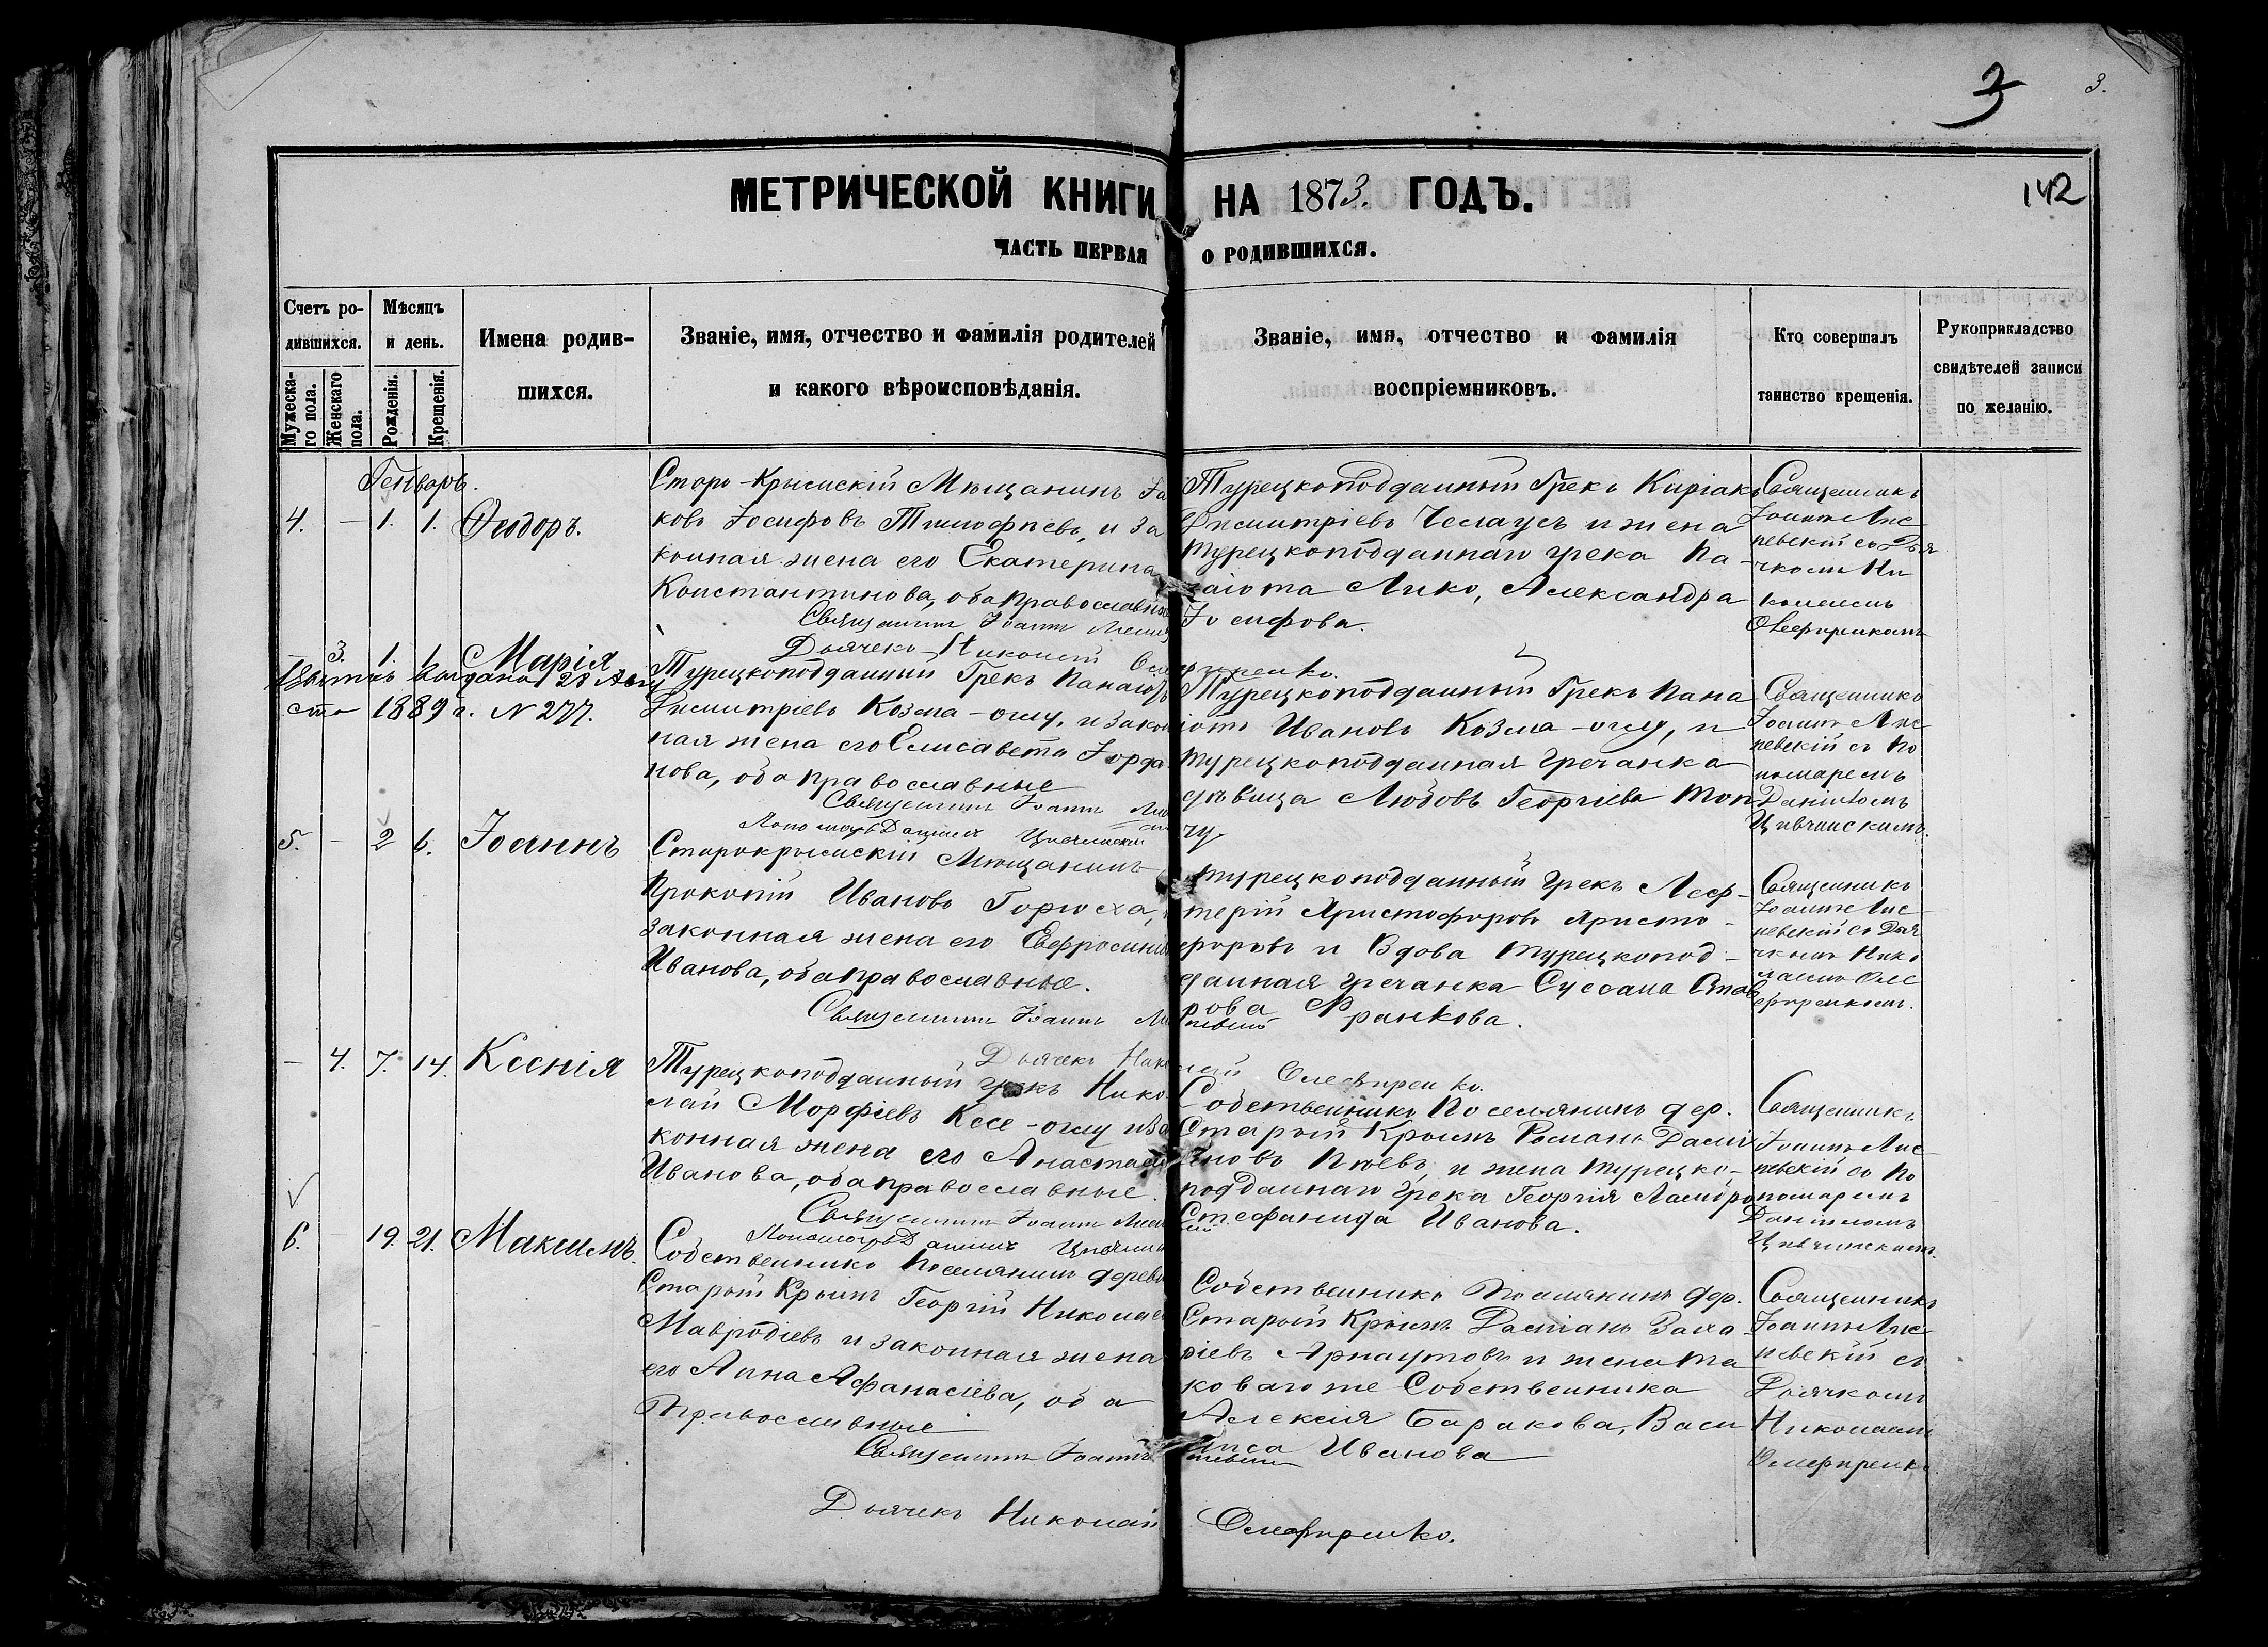 3
3.
142
МЕТРИЧЕСКОЙ КНИГИ НА 1873. ГОДЪ.
ЧАСТЬ ПЕРВАЯ О РОДИВШИХСЯ.
Счетъ ро-
дившихся.
Мужеска-
го пола.
Женскаго
пола.
Мѣсяцъ
и день.
Рожденія.
Крещенія.
Имена родив-
шихся.
Званіе, имя, отчество и фамилія родителей
и какого вѣроисповѣданія.
Званіе, имя, отчество и фамилія
воспріемниковъ.
Кто совершалъ
таинство крещенія.
Рукоприкладство
свидѣтелей записи
по желанію.
Генварь.
4. — 1. 1. Ѳеодоръ.
Старо-Крымскій Мѣщанинъ Іа
ковъ Іосифовъ Тимофѣевъ, и за
конная жена его Екатерина
Константинова, оба православные
Священникъ Іоаннъ
Дьячекъ Николай
Турецкоподданный Грекъ Киріакъ
Димитріевъ Чеслаусъ и жена
турецкоподданнаго грека Па-
наіота Лико, Александра
Іосифова.
Священникъ
Іоаннъ
съ Дья
чкомъ Ни
колаемъ
— 3. 1. 1. Марія
28 Авгу
ста 1889 г. № 277.
Турецкоподданный Грекъ Панаіотъ
Димитріевъ Козма-оглу, и закон
ная жена его Елисавета Іорда
нова, оба православные
Священникъ Іоаннъ
Пономарь Даніилъ
Турецкоподданный Грекъ Пана
іотъ Ивановъ Козма-оглу, и
турецкоподданная Гречанка
дѣвица Любовь Георгіева Топ
чу.
Священникъ
Іоаннъ
съ По
номаремъ
Даніиломъ
5. — 2 6. Іоаннъ
Старокрымскій Мѣщанинъ
Прокопій Ивановъ Горюха,
законная жена его Евфросинія
Иванова, оба православные.
Священникъ Іоаннъ
Дьячекъ
турецкоподданный грекъ Леф-
терій Христофоровъ Христо-
форовъ и Вдова турецкопод-
данная гречанка Сусанна
рова Франкова.
Священникъ
Іоаннъ
съ Дья
чкомъ Нико
лаемъ
— 4. 7. 14. Ксенія
Турецкоподданный грекъ Нико
лай Морфіевъ Кесе-оглу и за
конная жена его Анастасія
Иванова, оба православные.
Священникъ Іоаннъ
Пономарь Даніилъ
Собственникъ Поселянинъ дер.
Старый Крымъ Романъ Дамі
ановъ Пѣевъ, и жена турецко-
подданнаго грека Георгія
Стефанида Иванова.
Священникъ
Іоаннъ
съ По
номаремъ
Даніиломъ
6. — 19. 21. Максимъ.
Собственникъ Поселянинъ деревни
Старый Крымъ Георгій Николаевъ
Мавродіевъ и законная жена
его Анна Афанасіева, оба
Православные
Священникъ Іоаннъ
Дьячекъ Николай
Собственникъ Поселянинъ дер.
Старый Крымъ Даміанъ Заха
ріевъ Арнаутовъ и жена та
коваго же Собственника
Алексія Баракова, Васи
лиса Иванова
Священникъ
Іоаннъ
съ
Дьячкомъ
Николаемъ